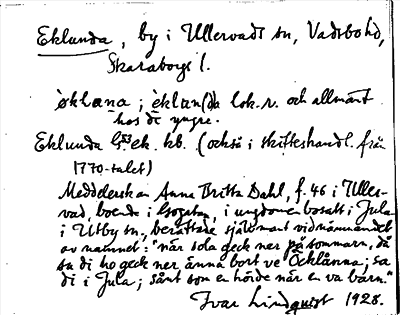 Eklunda, by i Ullervads sn, Vadsbo hd,
Skaraborgs l.
òkluna; èklun(d)a lok.v. och allmänt
hos de yngre.
Eklunda GS3 ek. kb. (också i skifteshandl. från
1770-talet)
Meddelerskan Anna Britta Dahl, f. 46 i Uller-
vad, boende i i ungdomen bosatt i Jula
i Utby sn, berättade självmant vid nämnandet
av namnet: "när sola geck ner på sommarn, då
sa di ho geck ner änna bort ve Öcklånna; sa
di i Jula; sånt som en hörde när en va barn."
Ivar Lindquist 1928.